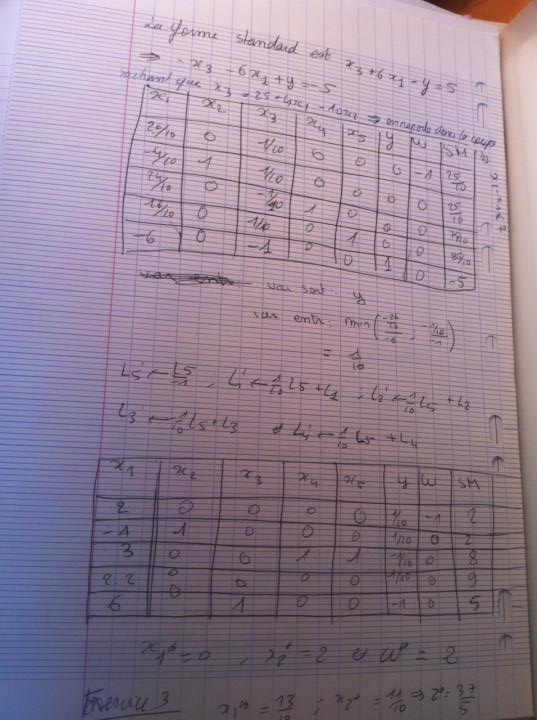 La forme standard est x3 + 6x1 - y = 5
⇒ -x3 - 6x1 + y = -5
sachant que x3 = 25 + 4x1 - 10x2 ⇒
x1 x2 x3 x4 x5 y w SM
26/10 0 1/10 0 0 0 -1 25/10
-4/10 1 1/10 0 0 0 0 25/10
24/10 0 -1/10 1 0 0 0
26/10 0 1/10 0 1 0 0 85/10
-6 0 -1 0 0 1 0 -5
var sort : y
var entr : min
= 1/10
L5' ← L5/-1 , L1' ← 1/10 L5 + L1 , L2' ← 1/10 L5 + L2
L3' ← -1/10 L5 + L3 et L4' ← 1/10 L5 + L4
x1 x2 x3 x4 x5 y w SM
2 0 0 0 0 1/10 -1 2
-1 1 0 0 0 1/10 0 2
3 0 0 1 1 -1/10 0 8
2,2 0 0 0 0 1/10 0 9
6 0 1 0 0 -1 0 5
x1* = 0 , x2* = 2 w* = 2
Exercice 3 x1* = 13/10 ; x2* = 11/10 ⇒ z* = 37/5